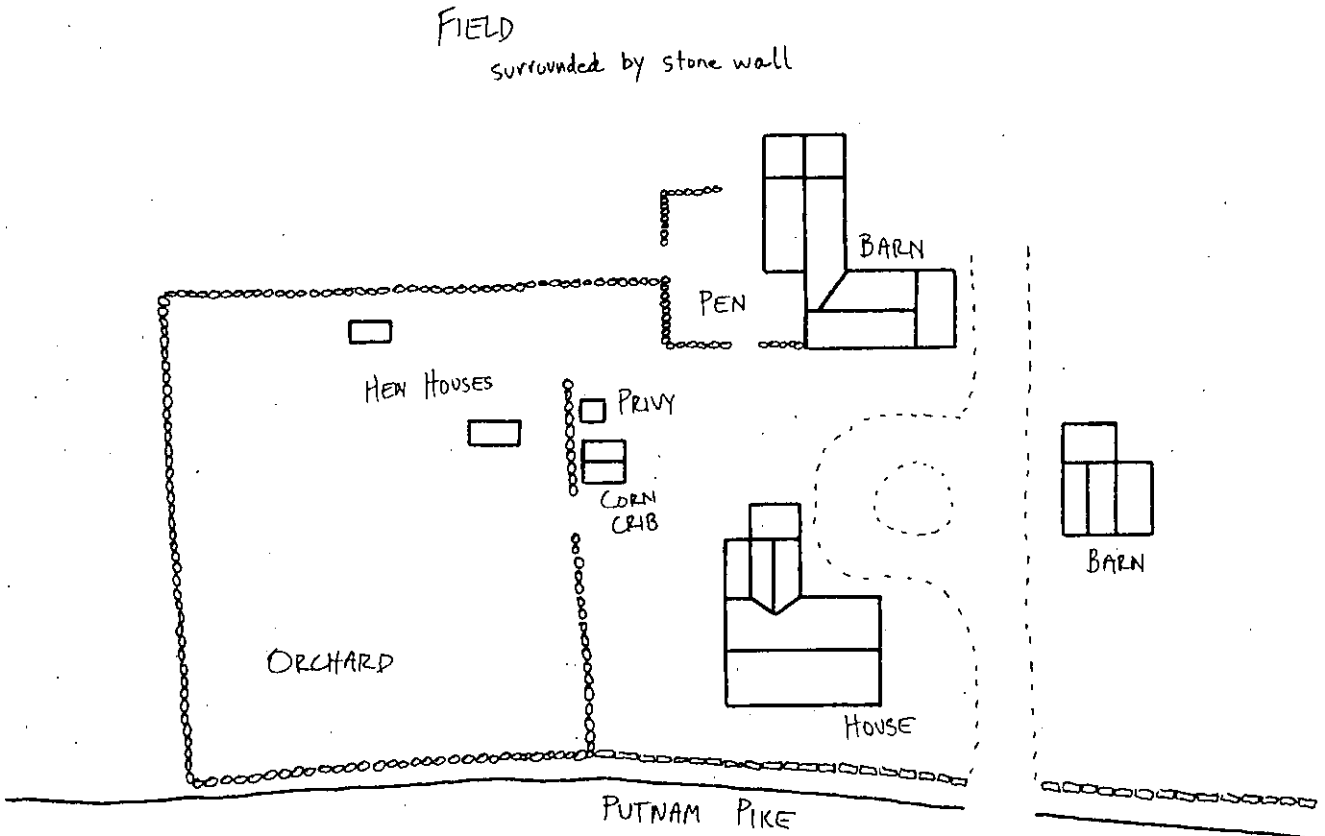 FIELD
surrounded by stone wall
BARN
PEN
HEN HOUSES
PRIVY
CORN
CRIB
BARN
ORCHARD
HOUSE
PUTNAM PIKE